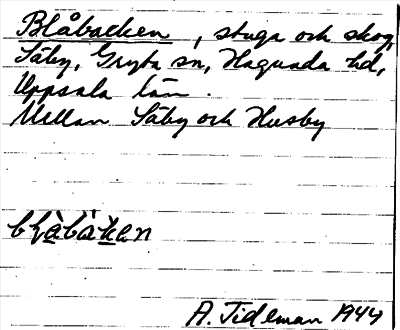 Blåbacken, stuga och skog,
Säby, Gryta sn, Hagunda hd,
Uppsala län.
Mellan Säby och Husby
bḷàbàken
A. Tideman 1944